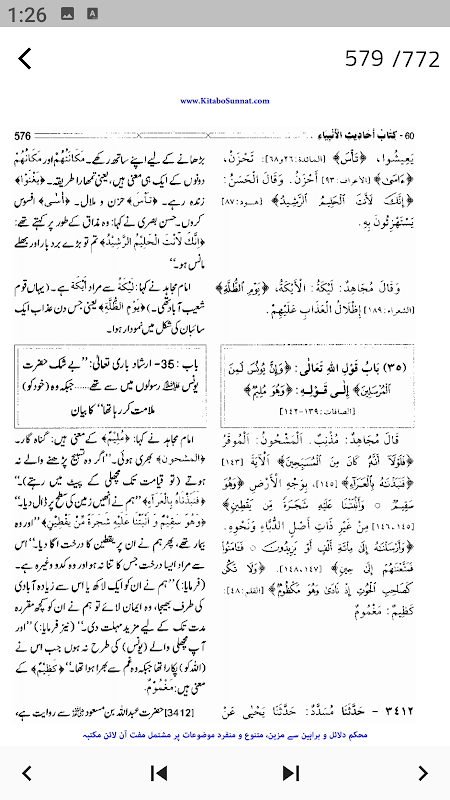 1:26
579 /772
www.KitaboSunnat.com
60- كِتَابُ أَحَادِيثِ الْأَنْبِيَاءِ
576
يَعِيشُوا، ﴿تَأْسَ﴾ [المائدة:٢٦و٦٨]: تَحْزَنْ،
﴿ءَاسَىٰ﴾ [الأعراف:٩٣] أَحْزَنُ. وَقَالَ الْحَسَنُ:
﴿إِنَّكَ لَأَنتَ ٱلْحَلِيمُ ٱلرَّشِيدُ﴾ [هود:٨٧]
يَسْتَهْزِئُونَ بِهِ.
بڑھانے کے لیے اپنے ساتھ رکھے۔ مَكَانَتُهُمْ اور مَكَانُهُمْ
دونوں کے ایک ہی معنی ہیں، یعنی تمہارا طریقہ۔ ﴿يَغْنَوْا﴾
زندہ رہے۔ ﴿تَأْسَ﴾ حزن و ملال۔ ﴿أٰسٰى﴾ افسوس
کروں۔ حسن بصری نے کہا: وہ مذاق کے طور پر کہتے تھے:
﴿إِنَّكَ لَأَنْتَ الْحَلِيْمُ الرَّشِيْدُ﴾ تم تو بڑے بردبار اور بھلے
مانس ہو۔"
وَقَالَ مُجَاهِدٌ: لَيْكَةُ: الْأَيْكَةُ، ﴿يَوْمِ ٱلظُّلَّةِ﴾
[الشعراء:١٨٩] إِظْلَالُ الْعَذَابِ عَلَيْهِمْ.
امام مجاہد نے کہا: لَيْكَةُ سے مراد أَيْكَة ہے۔ (یہاں قوم
شعیب آباد تھی۔) ﴿يَوْمِ الظُّلَّةِ﴾ یعنی جس دن عذاب ایک
سائبان کی شکل میں نمودار ہوا۔
(٣٥) بَابُ قَوْلِ اللهِ تَعَالَى: ﴿وَإِنَّ يُونُسَ لَمِنَ
ٱلْمُرْسَلِينَ﴾ إِلَى قَوْلِهِ: ﴿وَهُوَ مُلِيمٌ﴾
[الصافات:١٣٩-١٤٢]
باب :35- ارشاد باری تعالیٰ: "بے شک حضرت
یونس علیہ السلام رسولوں میں سے تھے......جبکہ وہ (خود کو)
ملامت کر رہا تھا" کا بیان
قَالَ مُجَاهِدٌ: مُذْنِبٌ. الْمَشْحُونُ: الْمُوقَرُ
﴿فَلَوْلَآ أَنَّهُۥ كَانَ مِنَ ٱلْمُسَبِّحِينَ﴾ الْآيَةَ [١٤٣]
﴿فَنَبَذْنَٰهُ بِٱلْعَرَآءِ﴾ [١٤٥]، بِوَجْهِ الْأَرْضِ ﴿وَهُوَ
سَقِيمٌ ○ وَأَنۢبَتْنَا عَلَيْهِ شَجَرَةً مِّن يَقْطِينٍ﴾
[١٤٦،١٤٥] مِنْ غَيْرِ ذَاتِ أَصْلٍ الدُّبَّاءِ وَنَحْوِهِ.
﴿وَأَرْسَلْنَٰهُ إِلَىٰ مِا۟ئَةِ أَلْفٍ أَوْ يَزِيدُونَ ○ فَـَٔامَنُوا۟
فَمَتَّعْنَٰهُمْ إِلَىٰ حِينٍ﴾ [١٤٨،١٤٧]. ﴿وَلَا تَكُن
كَصَاحِبِ ٱلْحُوتِ إِذْ نَادَىٰ وَهُوَ مَكْظُومٌ﴾ [القلم:٤٨]:
كَظِيمٌ: مَغْمُومٌ
امام مجاہد نے کہا: ﴿مُلِيْمٌ﴾ کے معنی ہیں: گناہ گار۔
﴿المشحون﴾ بھری ہوئی۔ "اگر وہ تسبیح پڑھنے والے نہ
ہوتے (تو قیامت تک مچھلی کے پیٹ میں رہتے)۔"
﴿فَنَبَذْنَاهُ بِالْعَرَاءِ﴾ "ہم نے انھیں زمین کی سطح پر ڈال دیا۔"
﴿وَهُوَ سَقِيْمٌ وَ أَنْبَتْنَا عَلَيْهِ شَجَرَةً مِّنْ يَّقْطِيْنٍ﴾ "اور وہ
بیمار تھے، پھر ہم نے ان پر یقطین کا درخت اگا دیا۔" اس
سے مراد ایسا درخت جس کا تنا نہ ہو اور وہ کدو وغیرہ ہے۔
(فرمایا:) "ہم نے ان کو ایک لاکھ یا اس سے زیادہ آبادی
کی طرف بھیجا، وہ ایمان لائے تو ہم نے ان کو کچھ مقررہ
مدت تک کے لیے مزید مہلت دی۔" (نیز فرمایا:) "اور
آپ مچھلی والے (یونس) کی طرح نہ ہوں جب اس نے
(اللہ کو) پکارا تھا جبکہ وہ غم سے بھرا ہوا تھا۔" ﴿كَظِيْمٌ﴾ کے
معنی ہیں: مَغْمُومٌ.
٣٤١٢ - حَدَّثَنَا مُسَدَّدٌ: حَدَّثَنَا يَحْيَى عَنْ
[3412] حضرت عبداللہ بن مسعود رضی اللہ عنہ سے روایت ہے،
محکم دلائل و براہین سے مزین، متنوع و منفرد موضوعات پر مشتمل مفت آن لائن مکتبہ